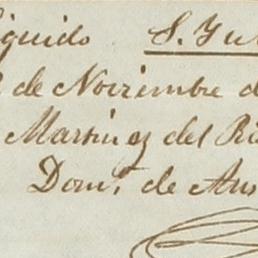 iquido S. Yu
de Noviembre d
Martinez del Ri
Dom.º de Ans